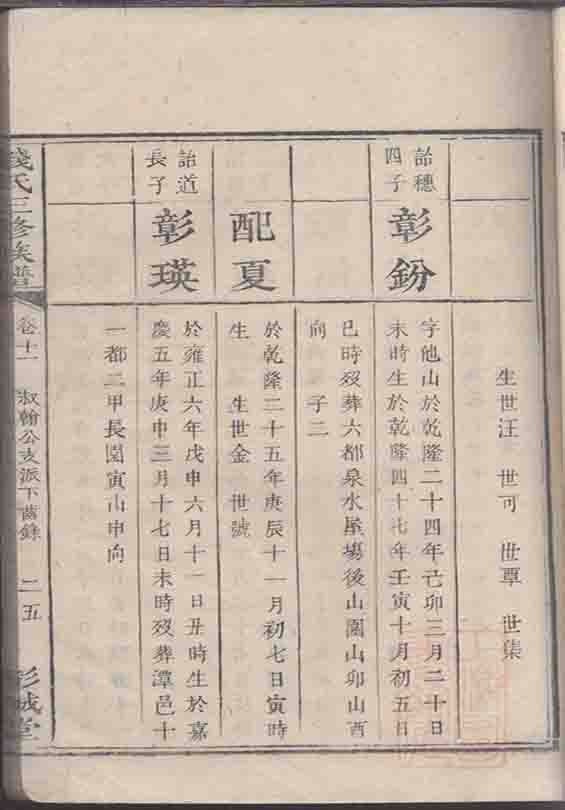 生世汪 世可 世覃 世集
詒穗
四子
彰鈖
字他山於乾隆二十四年己卯三月二十日
未時生於乾隆四十七年壬寅十月初五日
巳時歿葬六都泉水屋塲後山園山卯山酉
向 子二
配夏
於乾隆二十五年庚辰十一月初七日寅時
生 生世金 世號
詒道
長子
彰瑛
於雍正六年戊申六月十一日丑時生於嘉
慶五年庚申三月十七日未時歿葬潭邑十
一都二甲長園寅山申向
錢氏三修族譜
卷十一 叔翰公支派下齒錄 二五 彭城堂